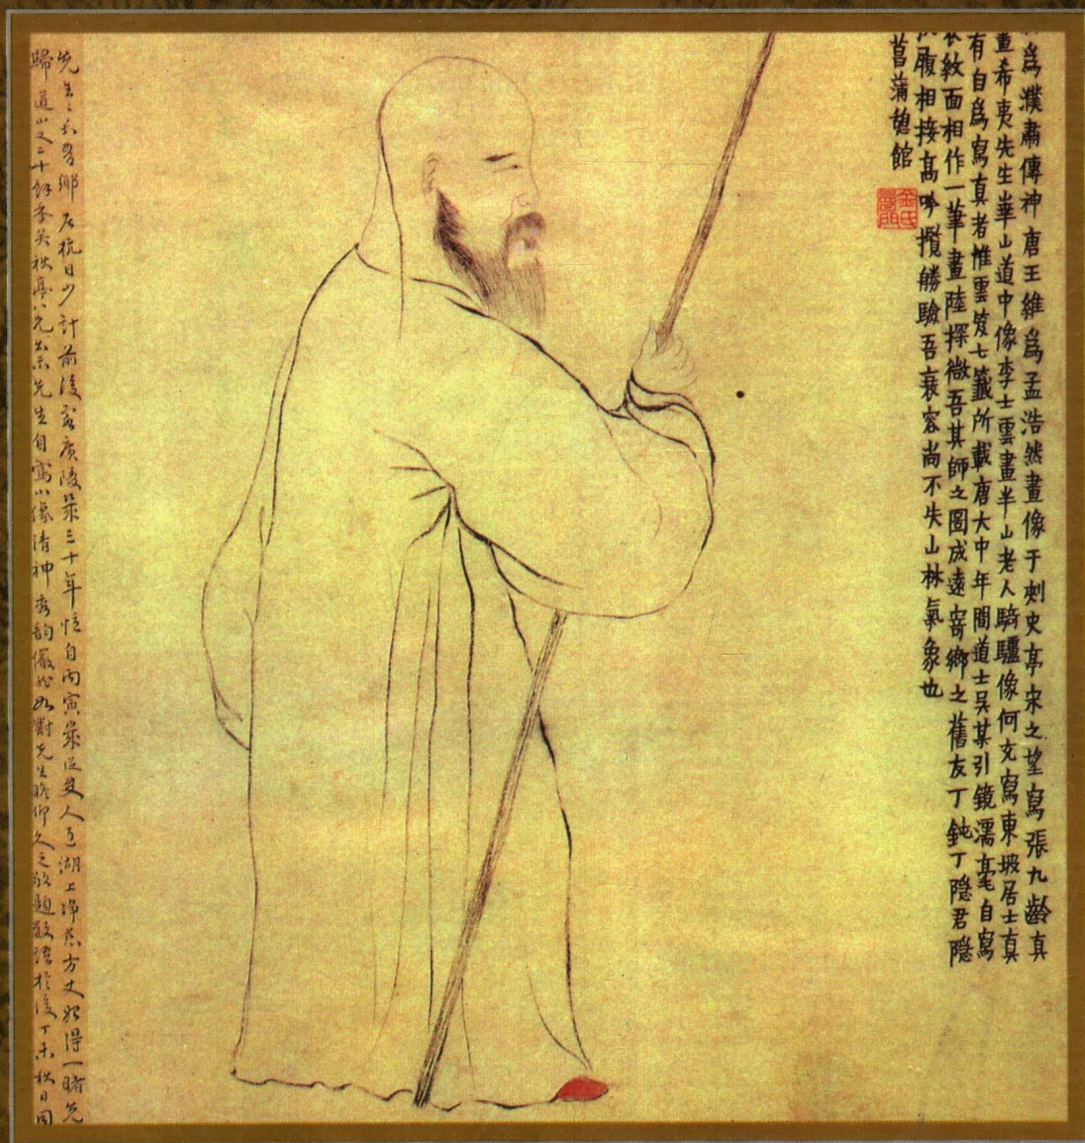 爲濮肅傳神唐王維爲孟浩然畫像于刺史亭宋之望寫張九齡真
畫希夷先生華山道中像李士雲畫半山老人騎驢像何充寫東坡居士真
有自爲寫真者惟雲笈七籤所載唐大中年間道士吳某引鏡濡毫自寫
衣紋面相作一筆畫陸探微吾其師之圖成遠寄鄉之舊友丁鈍丁隱君隱
履相接高吟攬勝驗吾衰容尚不失山林氣象也
菖蒲憩館
金氏
壽門
先生与吾鄉居杭日少計前後客廣陵幾三十年恒自丙寅歲逐吏人至湖上淨慈方丈始得一睹先
歸道山又二十餘季吳秋亭八兄出示先生自寫小像清神秀韵儼然如對先生瞻仰久之敬題數語於後丁未秋日同